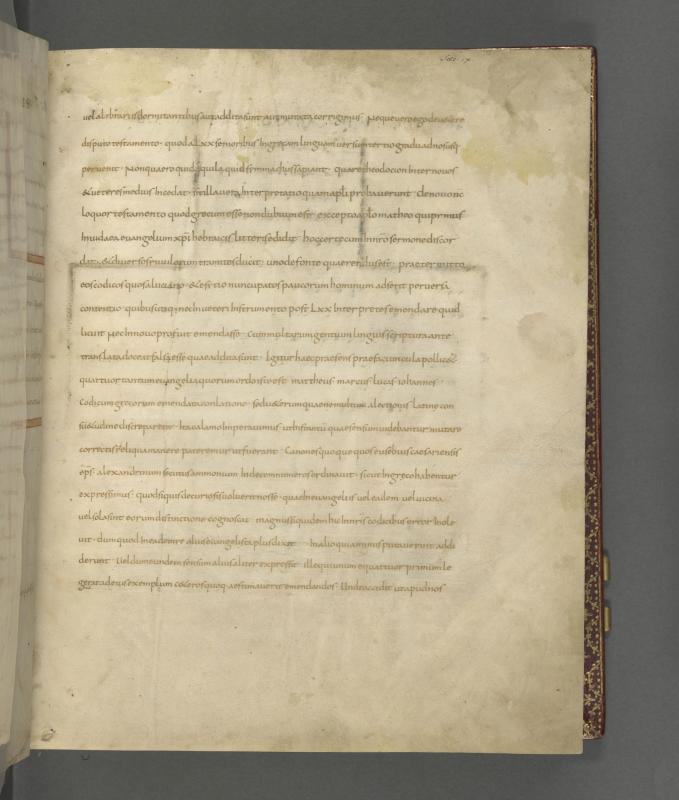 uel a librariis dormitantibus aut addita sunt aut mutata corrigimus · Neque uero ego de uetere
disputo testamento · quod a Lxx senioribus In grecam linguam uersum tertio gradu ad nos usq;
peruenit · Non quaero quid aquila quid simmachus sapiant · quare theodocion Inter nouos
& ueteres medius Incedat · sit illa uera Interpretatio quam apli probauerunt · De nouo nc
loquor testamento quod grecum esse non dubium est · excepto aplo matheo qui primus
In iudaea euangelium xpi hebraicis litteris edidit · hoc certe cum In nro sermone discor
dat · & diuersos riuulorum tramites ducit · uno de fonte quaerendum est · praetermitto
eos codices quos a luciano · & esitio nuncupatos paucorum hominum adserit peruersa
contentio · quibus utiq; nec In ueteri Instrumento post Lxx Interpretes emendare quid
licuit Nec In nouo profuit emendasse · Cum multarum gentium linguis scriptura ante
translata doceat falsa esse quae addita sunt · Igitur haec praesens praefaciuncula pollic&
quattuor tantum euangelia quorum ordo iste est · mattheus · marcus · lucas · iohannes
Codicum grecorum emendata conlatione · sed u&erum quae ne multum a lectionis · latine con
su&udine discreparent · Ita calamo Imperauimus · ut his tantum quae sensum uidebantur mutare
correctis reliqua manere pateremur ut fuerant · Canones quoque quos eusebius caesariensis
eps · alexandrinum secutus ammonium In decem numeros ordinauit · sicut In greco habentur
expressimus · quod si quis de curiosis uoluerit nosse · quae In euangeliis uel eadem uel uicina
uel sola sint eorum distinctione cognoscat · magnus siquidem hic In nris codicibus error Inole
uit · dum quod In eadem re alius euangelista plus dixit · In alio quia minus putauerunt addi
derunt · Vel dum eundem sensum alius aliter expressit · Ille qui unum e quattuor primum le
gerat ad eius exemplum c&eros quoq; aestimauerit emendandos · Unde accidit ut apud nos